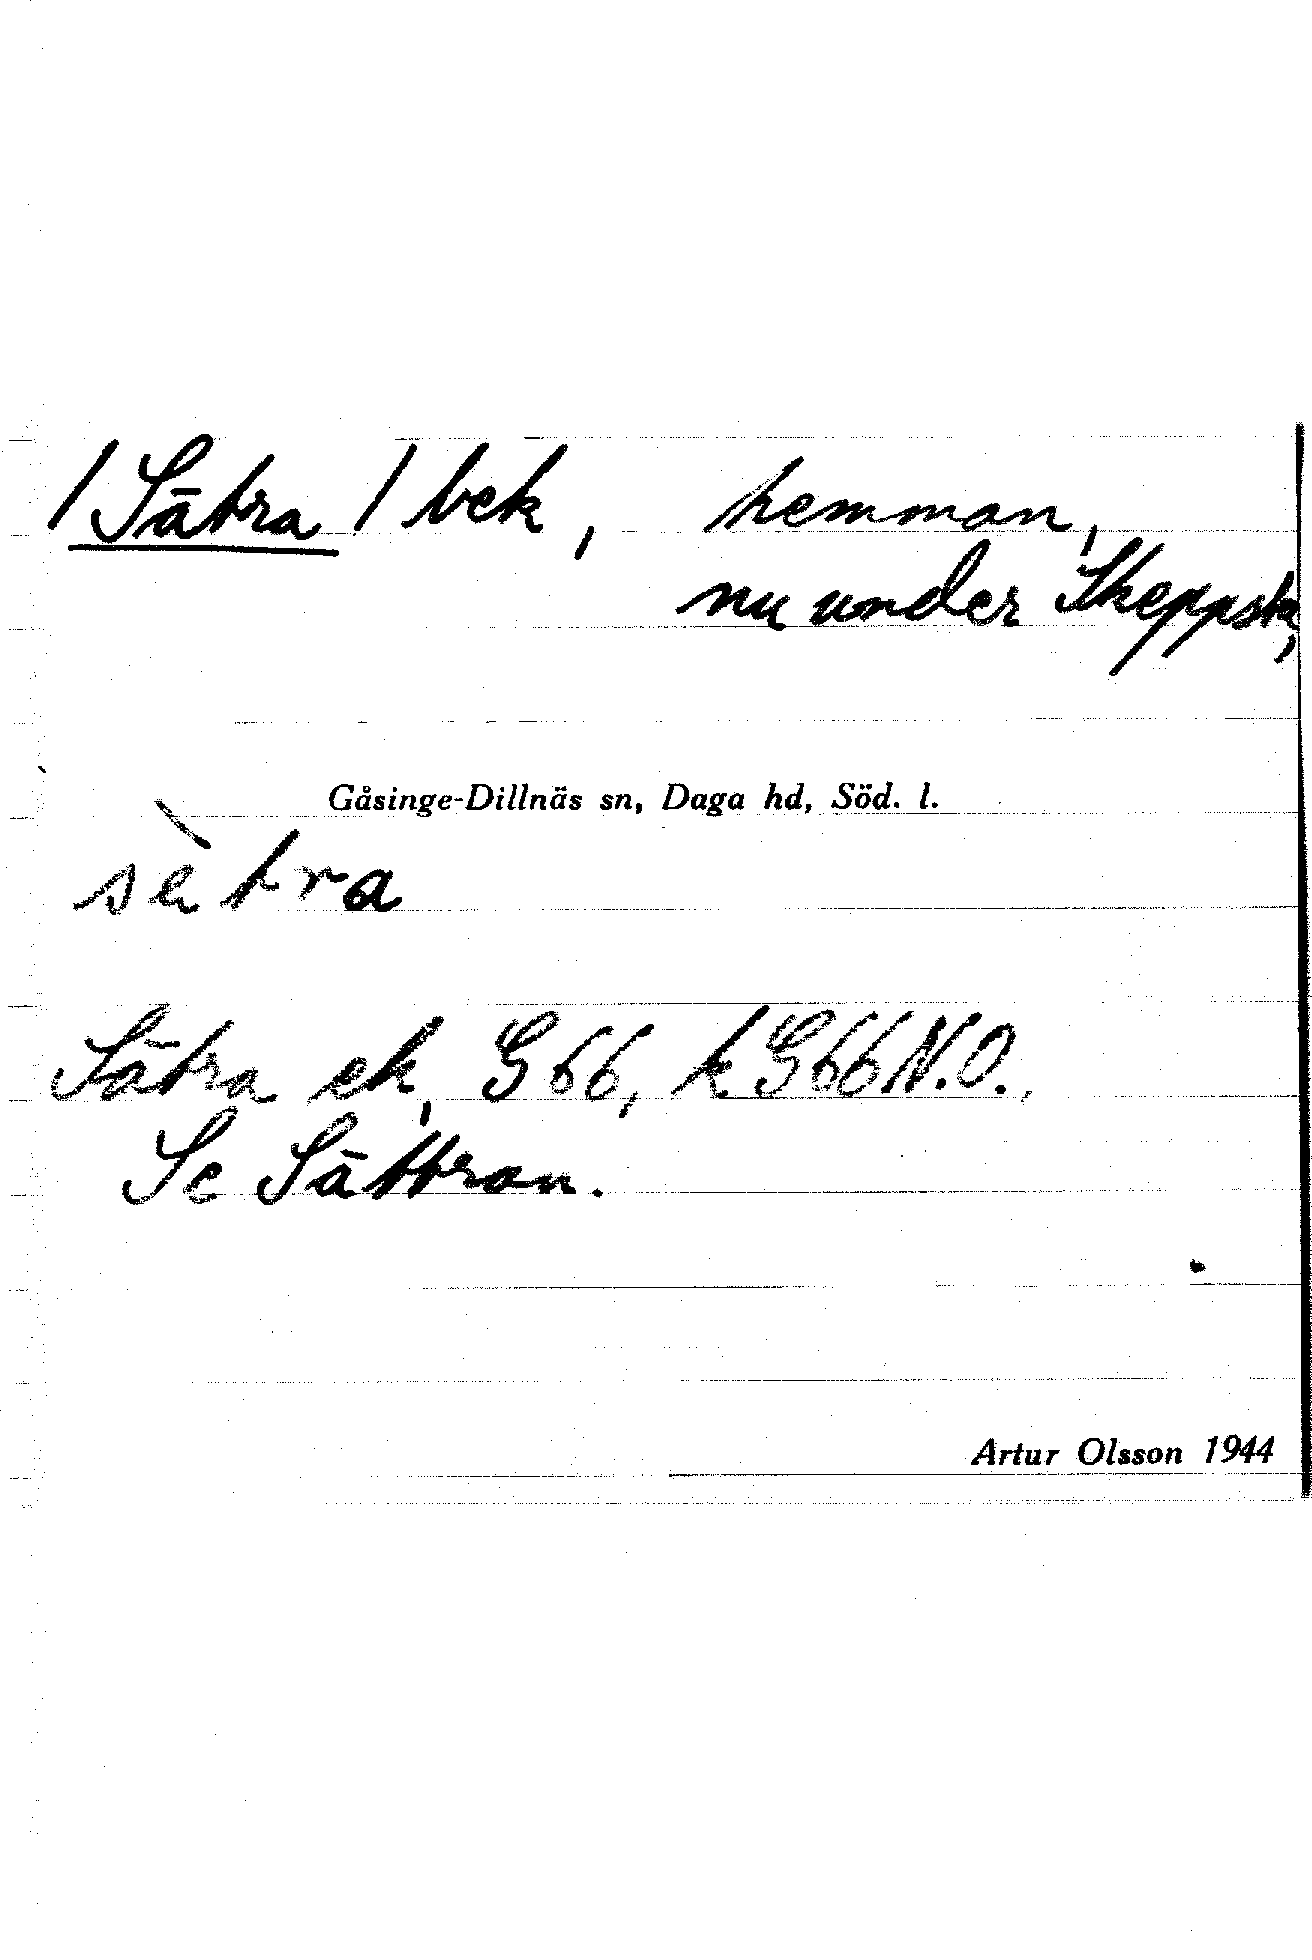 / Sätra / bek, hemman,
nu under Skeppsta,
Gåsinge-Dillnäs sn, Daga hd, Söd. l.
sètra
Sätra ek, G 66, k G66 N.O.,
Se Sättran.
Artur Olsson 1944